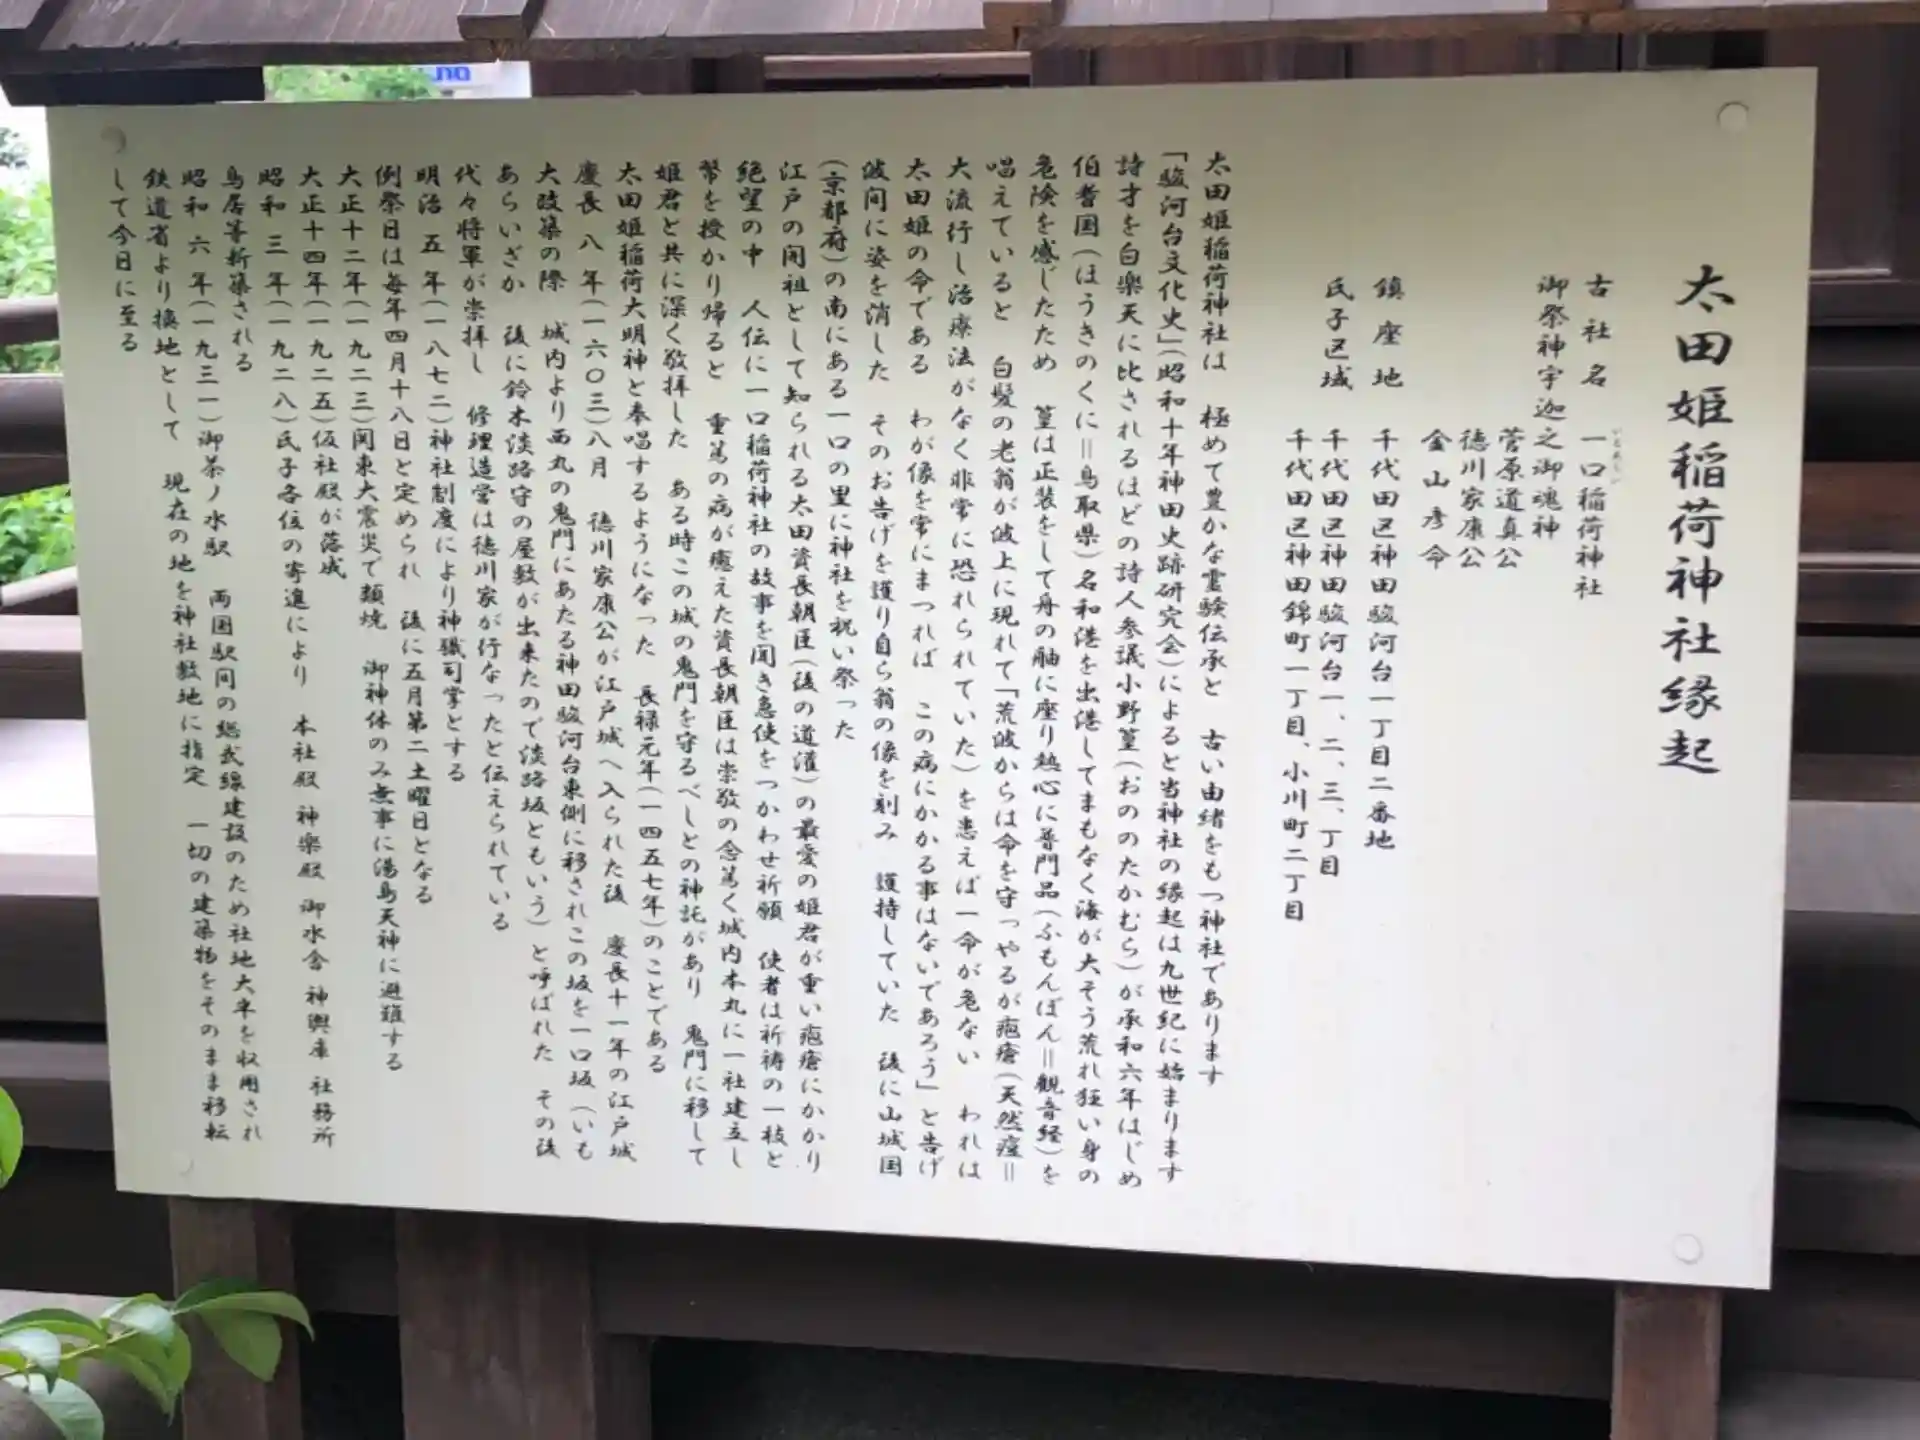 太田姫稲荷神社縁起
古社名 一口稲荷神社
いもあらい
御祭神宇迦之御魂神
菅原道真公
徳川家康公
金山彦命
鎮座地 千代田区神田駿河台一丁目二番地
氏子区域 千代田区神田駿河台一、二、三、丁目
千代田区神田錦町一丁目、小川町二丁目
太田姫稲荷神社は 極めて豊かな霊験伝承と 古い由緒をもつ神社であります
「駿河台文化史」(昭和十年神田史跡研究会)によると当神社の縁起は九世紀に始まります
詩才を白楽天に比されるほどの詩人参議小野篁(おののたかむら)が承和六年はじめ
伯耆国(ほうきのくに=鳥取県)名和港を出港してまもなく海が大そう荒れ狂い身の
危険を感じたため 篁は正装をして舟の舳に座り熱心に普門品(ふもんぼん=観音経)を
唱えていると 白髪の老翁が波上に現れて「荒波からは命を守ってやるが疱瘡(天然痘=
大流行し治療法がなく非常に恐れられていた)を患えば一命が危ない われは
太田姫の命である わが像を常にまつれば この病にかかる事はないであろう」と告げ
波間に姿を消した そのお告げを護り自ら翁の像を刻み 護持していた 後に山城国
(京都府)の南にある一口の里に神社を祝い祭った
江戸の開祖として知られる太田資長朝臣(後の道灌)の最愛の姫君が重い疱瘡にかかり
絶望の中 人伝に一口稲荷神社の故事を聞き急使をつかわせ祈願 使者は祈祷の一枝と
幣を授かり帰ると 重篤の病が癒えた資長朝臣は崇敬の念篤く城内本丸に一社建立し
姫君と共に深く敬拝した ある時この城の鬼門を守るべしとの神託があり 鬼門に移して
太田姫稲荷大明神と奉唱するようになった 長禄元年(一四五七年)のことである
慶長 八 年(一六〇三)八月 徳川家康公が江戸城へ入られた後 慶長十一年の江戸城
大改築の際 城内より西丸の鬼門にあたる神田駿河台東側に移されこの坂を一口坂(いも
あらいざか 後に鈴木淡路守の屋敷が出来たので淡路坂ともいう)と呼ばれた その後
代々将軍が崇拝し 修理造営は徳川家が行なったと伝えられている
明治 五 年(一八七二)神社制度により神職司掌とする
例祭日は毎年四月十八日と定められ 後に五月第二土曜日となる
大正十二年(一九二三)関東大震災で類焼 御神体のみ無事に湯島天神に避難する
大正十四年(一九二五)仮社殿が落成
昭和 三 年(一九二八)氏子各位の寄進により 本社殿 神楽殿 御水舎 神輿庫 社務所
鳥居等新築される
昭和 六 年(一九三一)御茶ノ水駅 両国駅間の総武線建設のため社地大半を収用され
鉄道省より換地として 現在の地を神社敷地に指定 一切の建築物をそのまま移転
して今日に至る